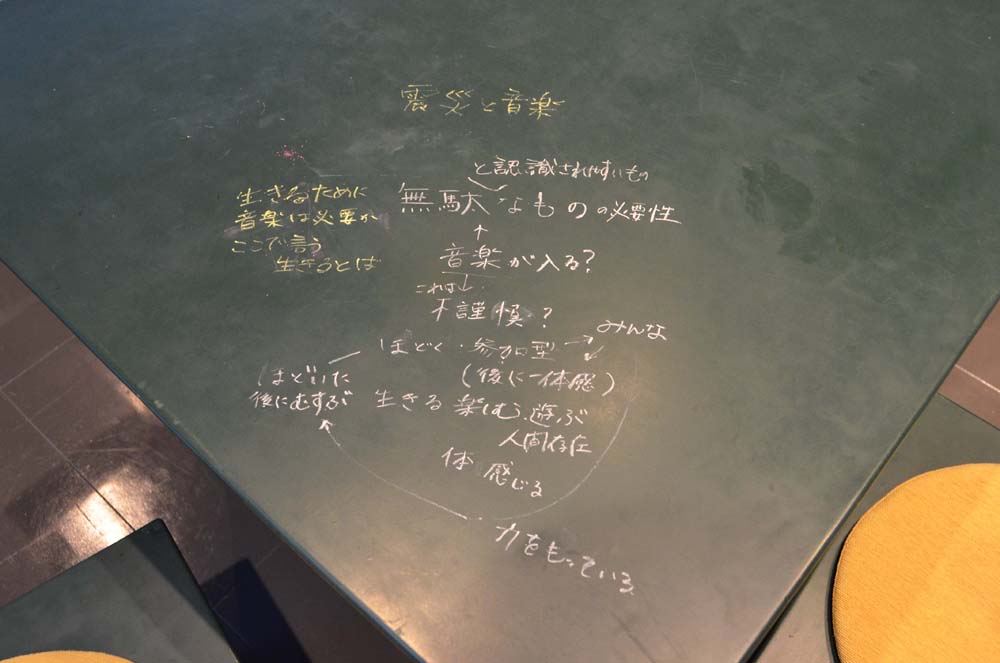 震災と音楽
と認識されやすいもの
無駄なものの必要性
生きるために
音楽は必要か
ここで言う
生きるとは
音楽が入る?
これは↓
不謹慎?
ほどく・参加型 → みんな
(後に一体感)
ほどいた
後にむすぶ
生きる 楽しむ 遊ぶ
人間存在
体 感じる
力をもっている